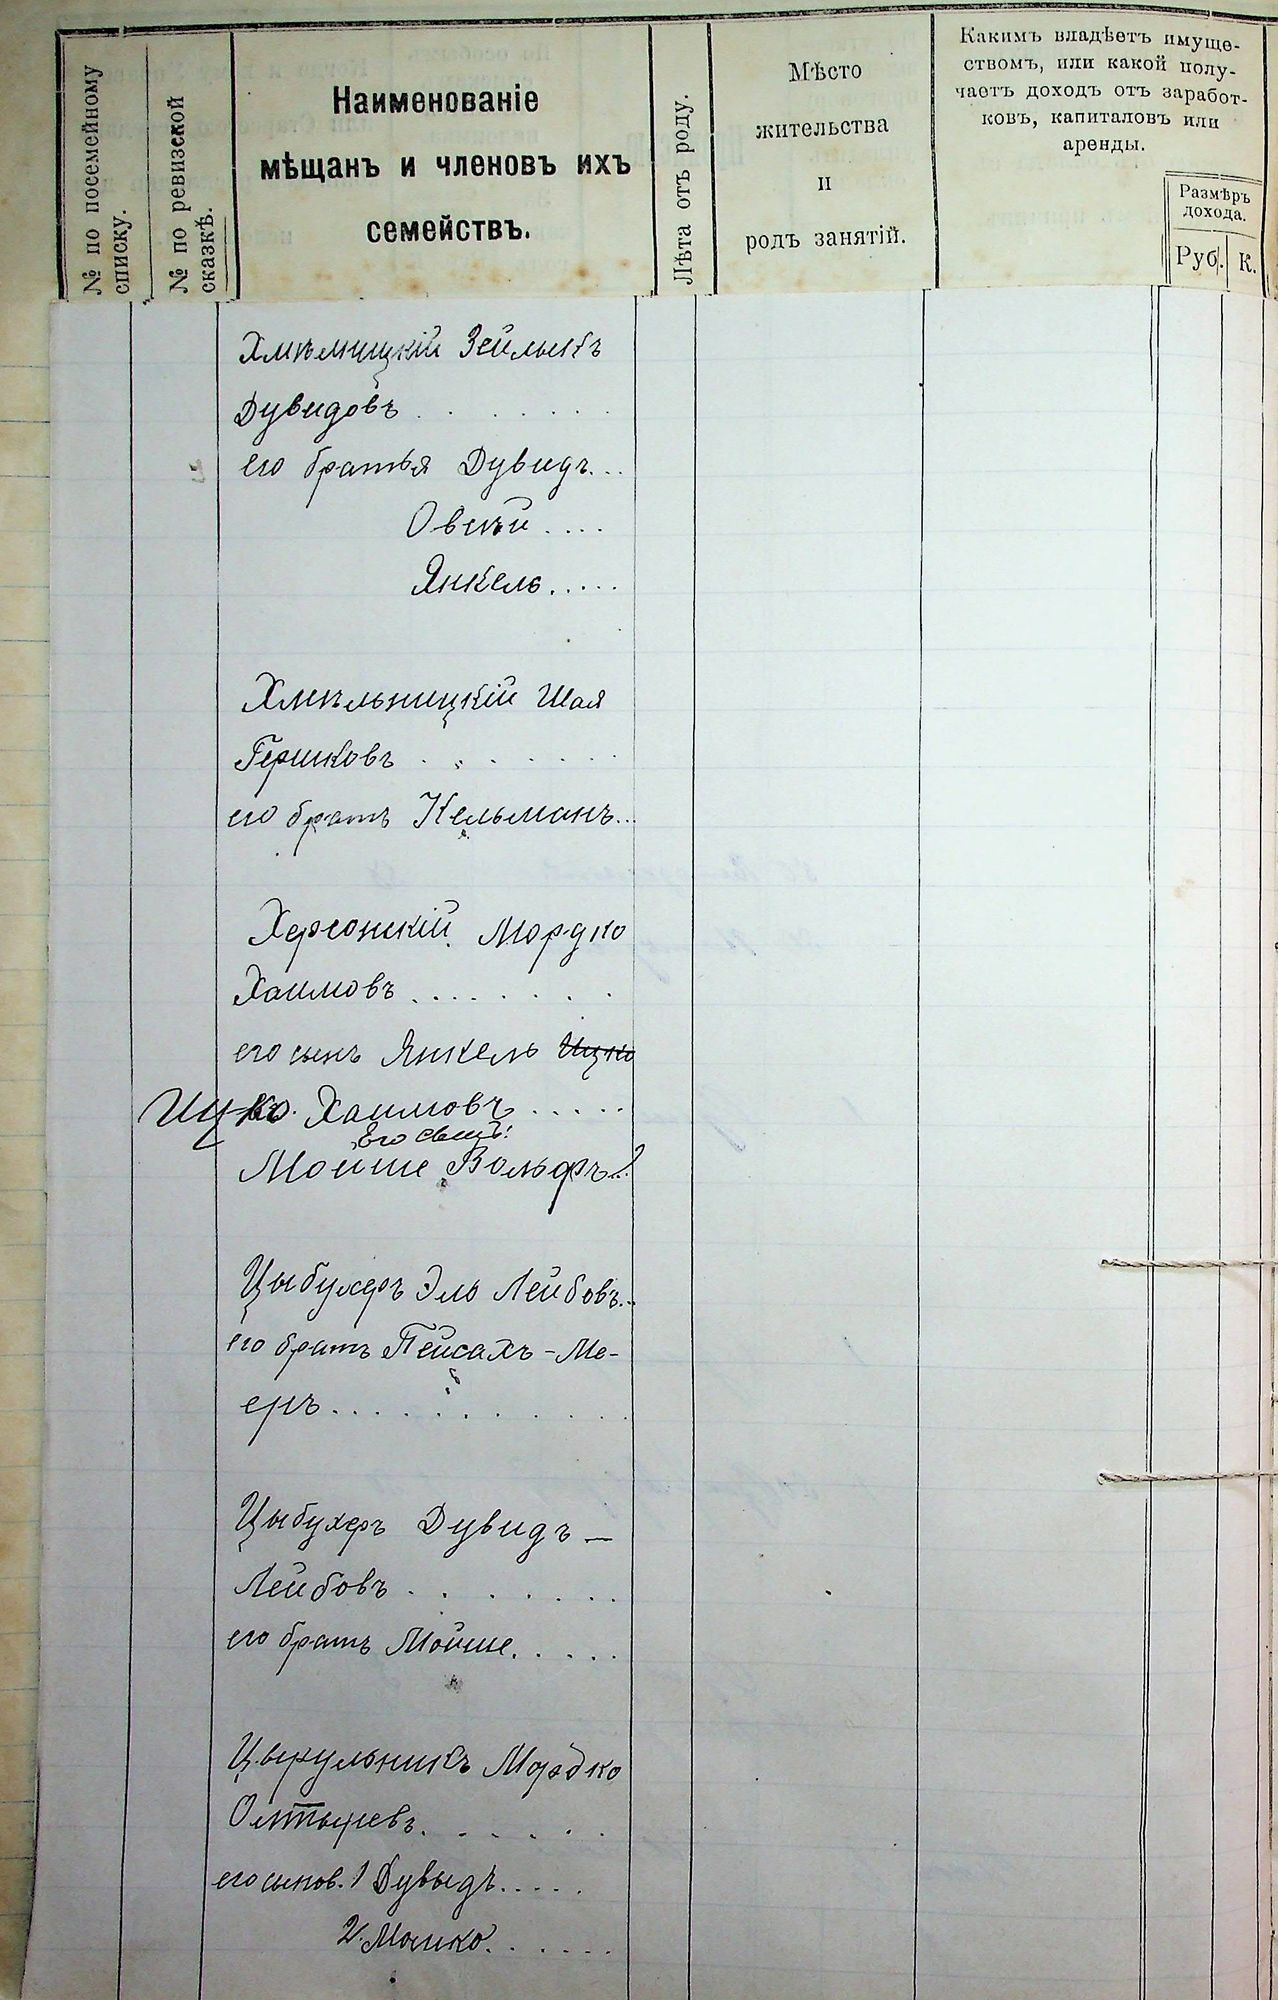 № по посемейному
списку.
№ по ревизской
сказкѣ.
Наименованіе
мѣщанъ и членовъ ихъ
семействъ.
Лѣта отъ роду.
Мѣсто
жительства
и
родъ занятій.
Какимъ владѣетъ имуще-
ствомъ, или какой полу-
чаетъ доходъ отъ заработ-
ковъ, капиталовъ или
аренды.
Размѣръ
дохода.
Руб. К.
Зейлыкъ
Дувидовъ . . . . . . .
его братья Дувидъ...
Овшій ....
Янкель .....
Хмѣльницкій Шая
Гершковъ . . . . . . .
его братъ Кельманъ...
Херсонскій Мордко
Хаимовъ . . . . . . . .
его сынъ Янкель Ицко
Ицко. Хаимовъ .....
Его сынъ:
Мойше Вольфъ..
Цыбухеръ Эль Лейбовъ...
его братъ Пейсахъ-Ме-
еръ . . . . . . . . . . .
Цыбухеръ Дувидъ —
Лейбовъ . . . . . . .
его братъ Мойше. . . . .
Цверульникъ Мордко
его сынов. 1 Дувыдъ.....
2. Мошко. . . . . .